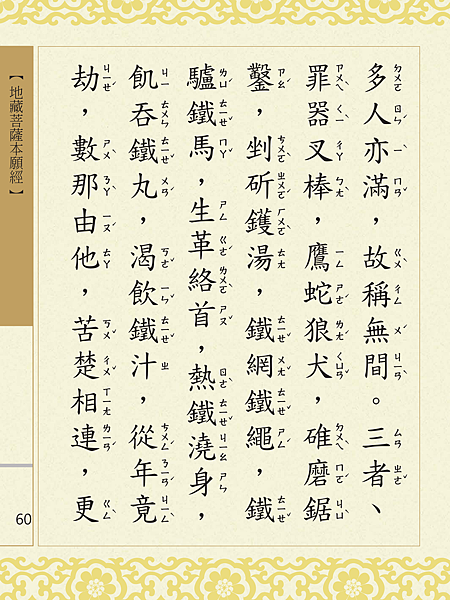 多人亦滿，故稱無間。三者、
罪器叉棒，鷹蛇狼犬，碓磨鋸
鑿，剉斫鑊湯，鐵網鐵繩，鐵
驢鐵馬，生革絡首，熱鐵澆身，
飢吞鐵丸，渴飲鐵汁，從年竟
劫，數那由他，苦楚相連，更
【地藏菩薩本願經】
60